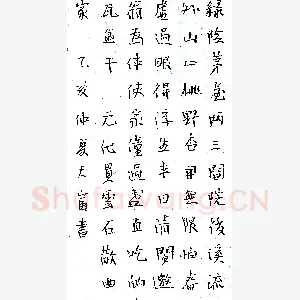 緑陰茅屋两三間院後溪流
外山山桃野杏開無限怕春
虛過眼得浮生半日清閒邀
翁為伴使家僮過盞直吃的
瓦盆干 元代貫雲石散曲
家 乙亥仲夏大書
ShufaWang.CN